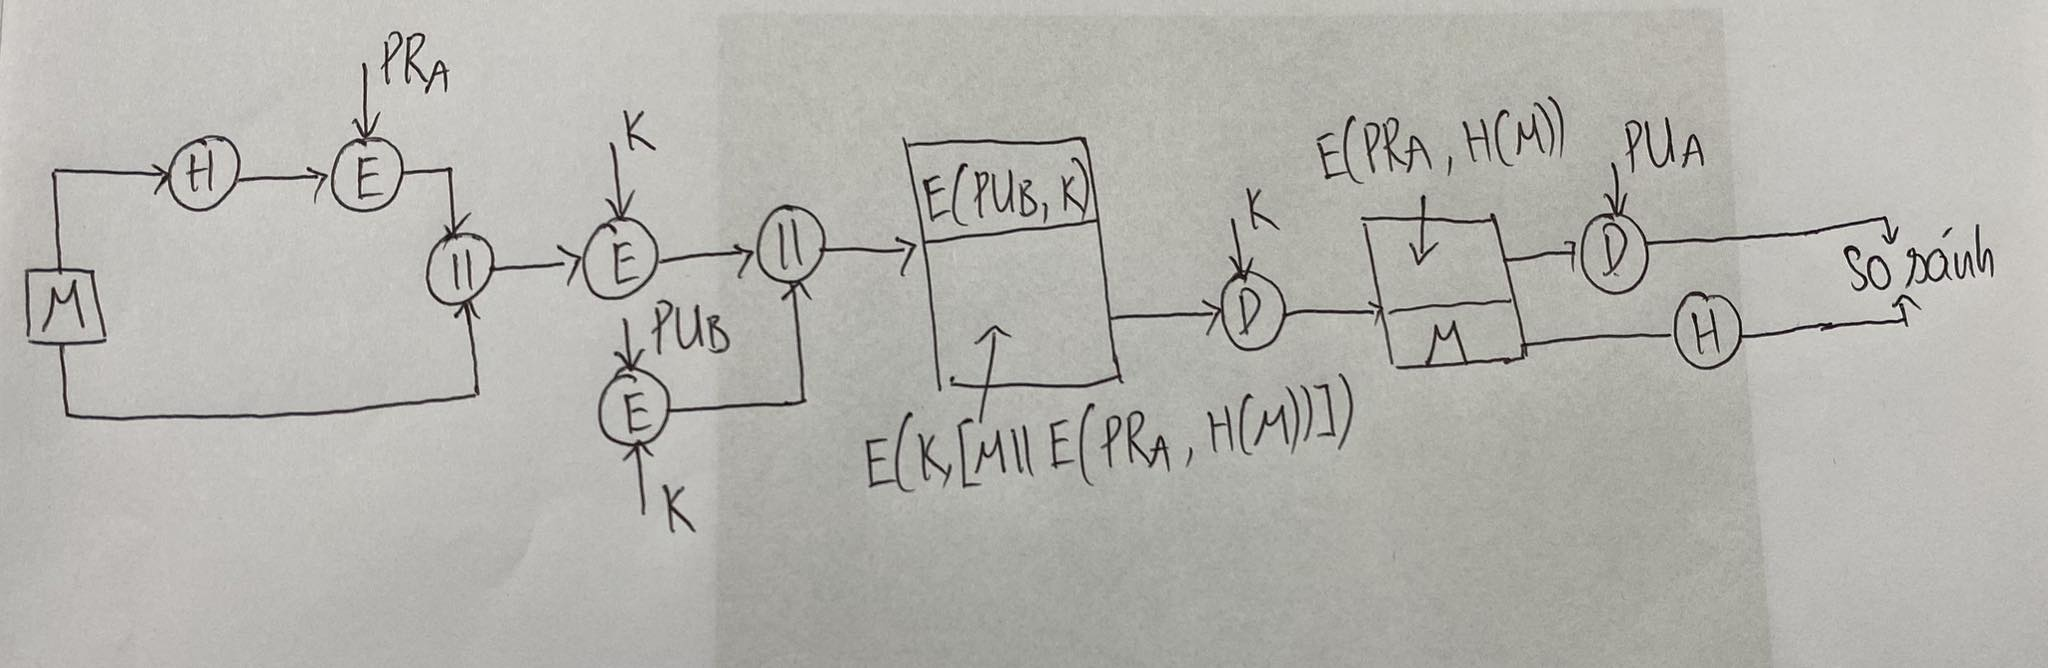 PRA
H
E
M
||
K
E
PUB
E
K
||
E(PUB, K)
E(K,[M|| E(PRA, H(M))])
K
D
E(PRA, H(M))
M
PUA
D
H
So sánh